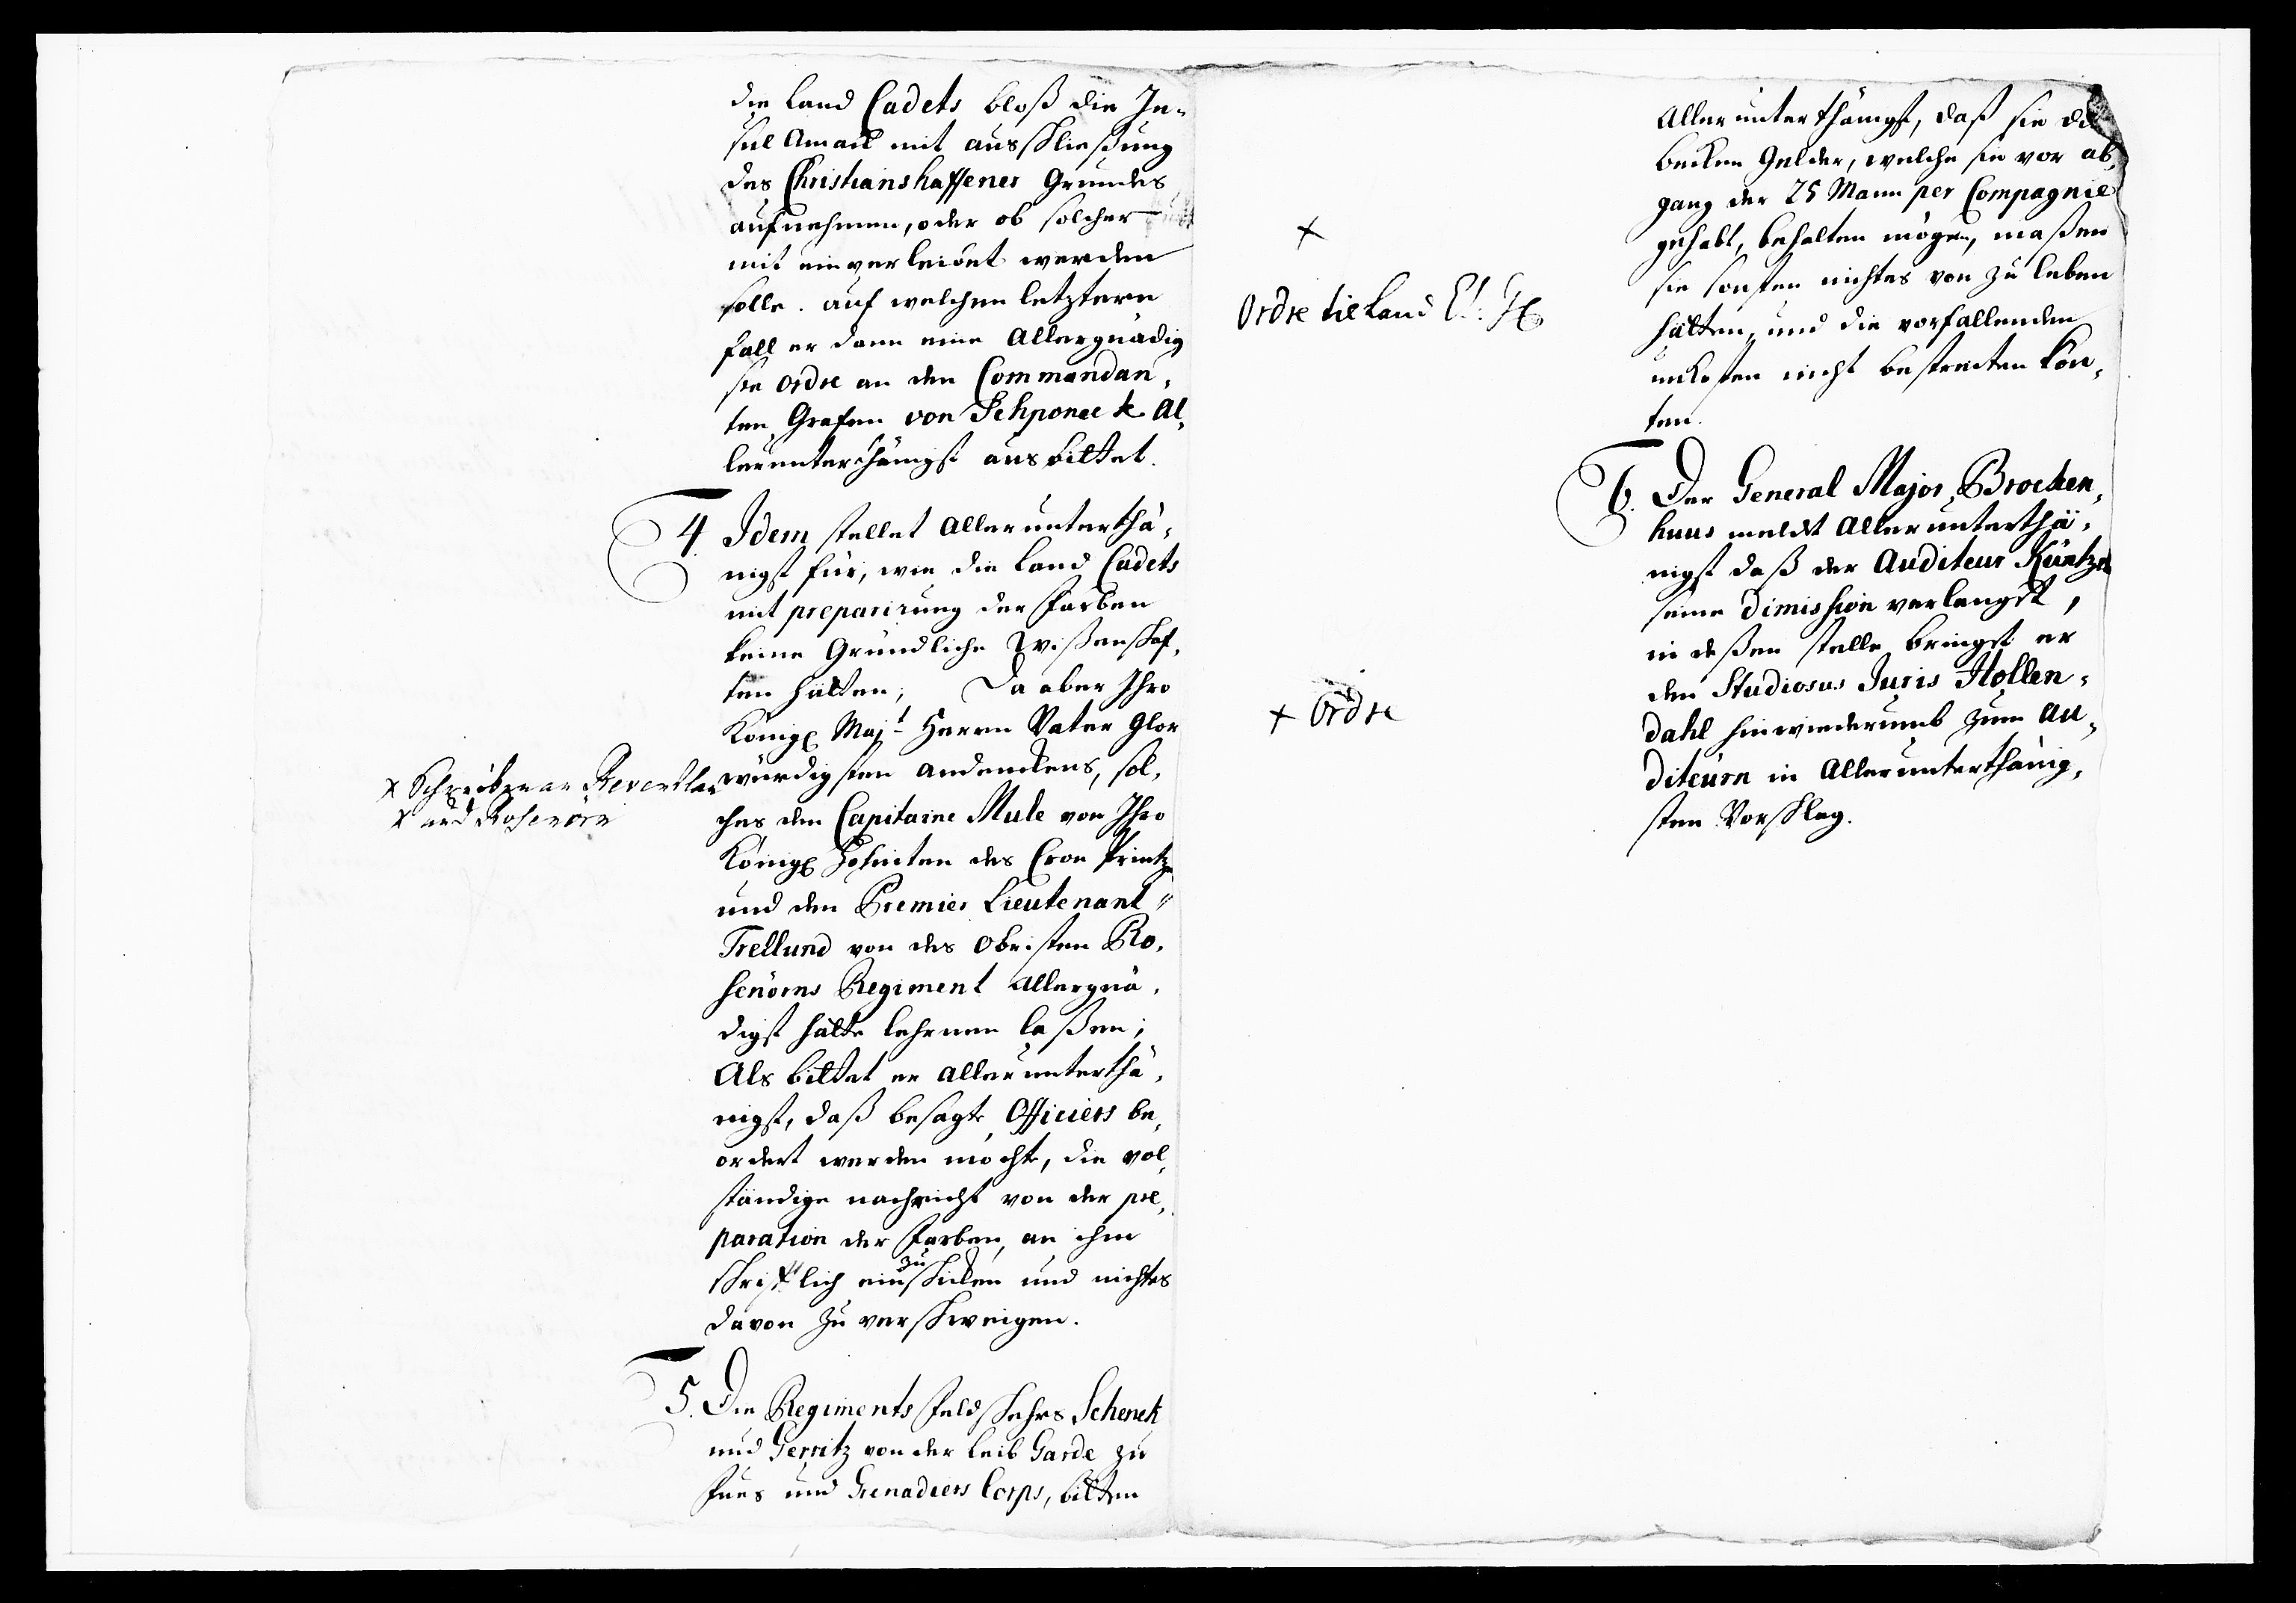 die Land Cadets bloß die In-
sul Amack mit ausschließung
des Christianshaffener Grundes
aufnehmen, oder ob solcher
mit einverleibet werden
solle. auf welchen letztern
fall er dann eine Allergnädig
ste ordre an den Commandan,
ten, Grafen von Schponeck Al,
lerunterthänigst ausbittet.
4. Idem stellet Allerunterthä,
nigst für, wie die Land Cadets
mit preparirung der Farben
keine Gründliche Wißenschaf,
ten hätten; Da aber Ihro
Königl Majt Herrn Vater Glor
würdigsten andenckens, sol,
ches den Capitaine Mule von Ihro
Königl Hoheiten des Cron Printzen
und den Premier Lieutenant
Trellund von des Obristen Ro,
senörns Regiment Allergnä,
digst hätte lehrnen laßen;
Als bittet er Allerunterthä,
nigst, daß besagte Officiers be,
ordert werden möchte, die vol,
ständige nachricht von der pre,
paration der Farben, an ihm
schriftlich einzuschicken und nichtes
davon zu verschweigen.
5. Die Regiments Feldschehrs Schenck
und Gerritz von der Leib Garde zu
Fues und Grenadiers Corps, bitten
x Schreiben an Reventlau
x und Rosenörn
x
Ordre til Land Et: G
x Ordre
Allerunterthänigst, daß sie die
becken Gelder, welche sie vor ab,
gang der 25 Mann per Compagnie
gehabt, behalten mögen, maßen
sie sonsten nichtes von zu leben
hätten, und die vorfallenden
unkosten nicht bestreiten kön,
ten.
6. Der General Major Brocken,
huus meldet Allerunterthä,
nigst daß der Auditeur Küntzel
seine Dimission verlanget,
in deßen stelle bringet er
den Studiosus Juris Hollen,
dahl hinwiederumb zum Au,
diteurn in Allerunterthänig,
sten Vorschlag.